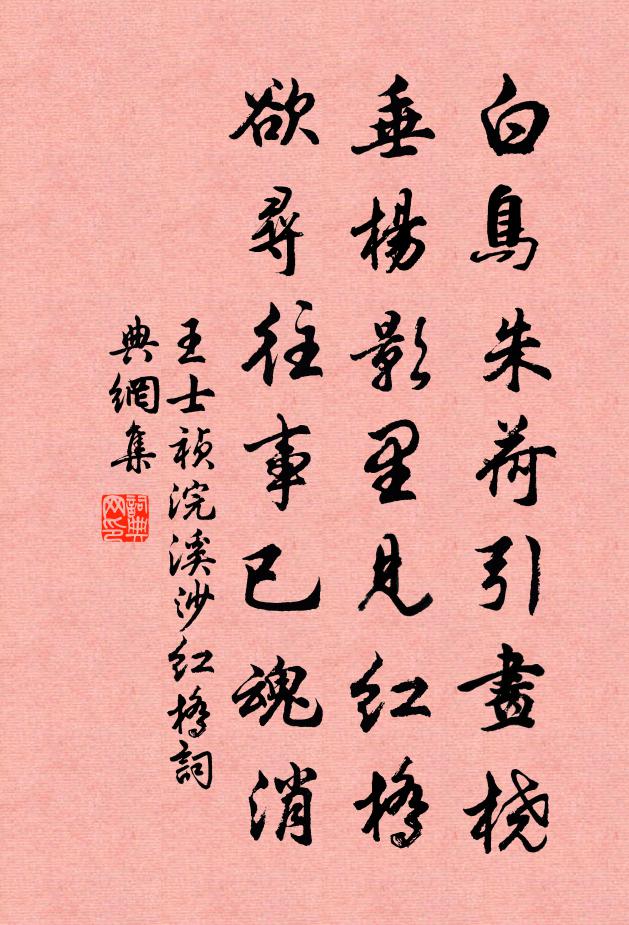 白鳥朱荷引畫橈
垂楊影里見紅橋
欲尋往事已魂消
王士禎浣溪沙紅橋詞
典網集
詞典网印